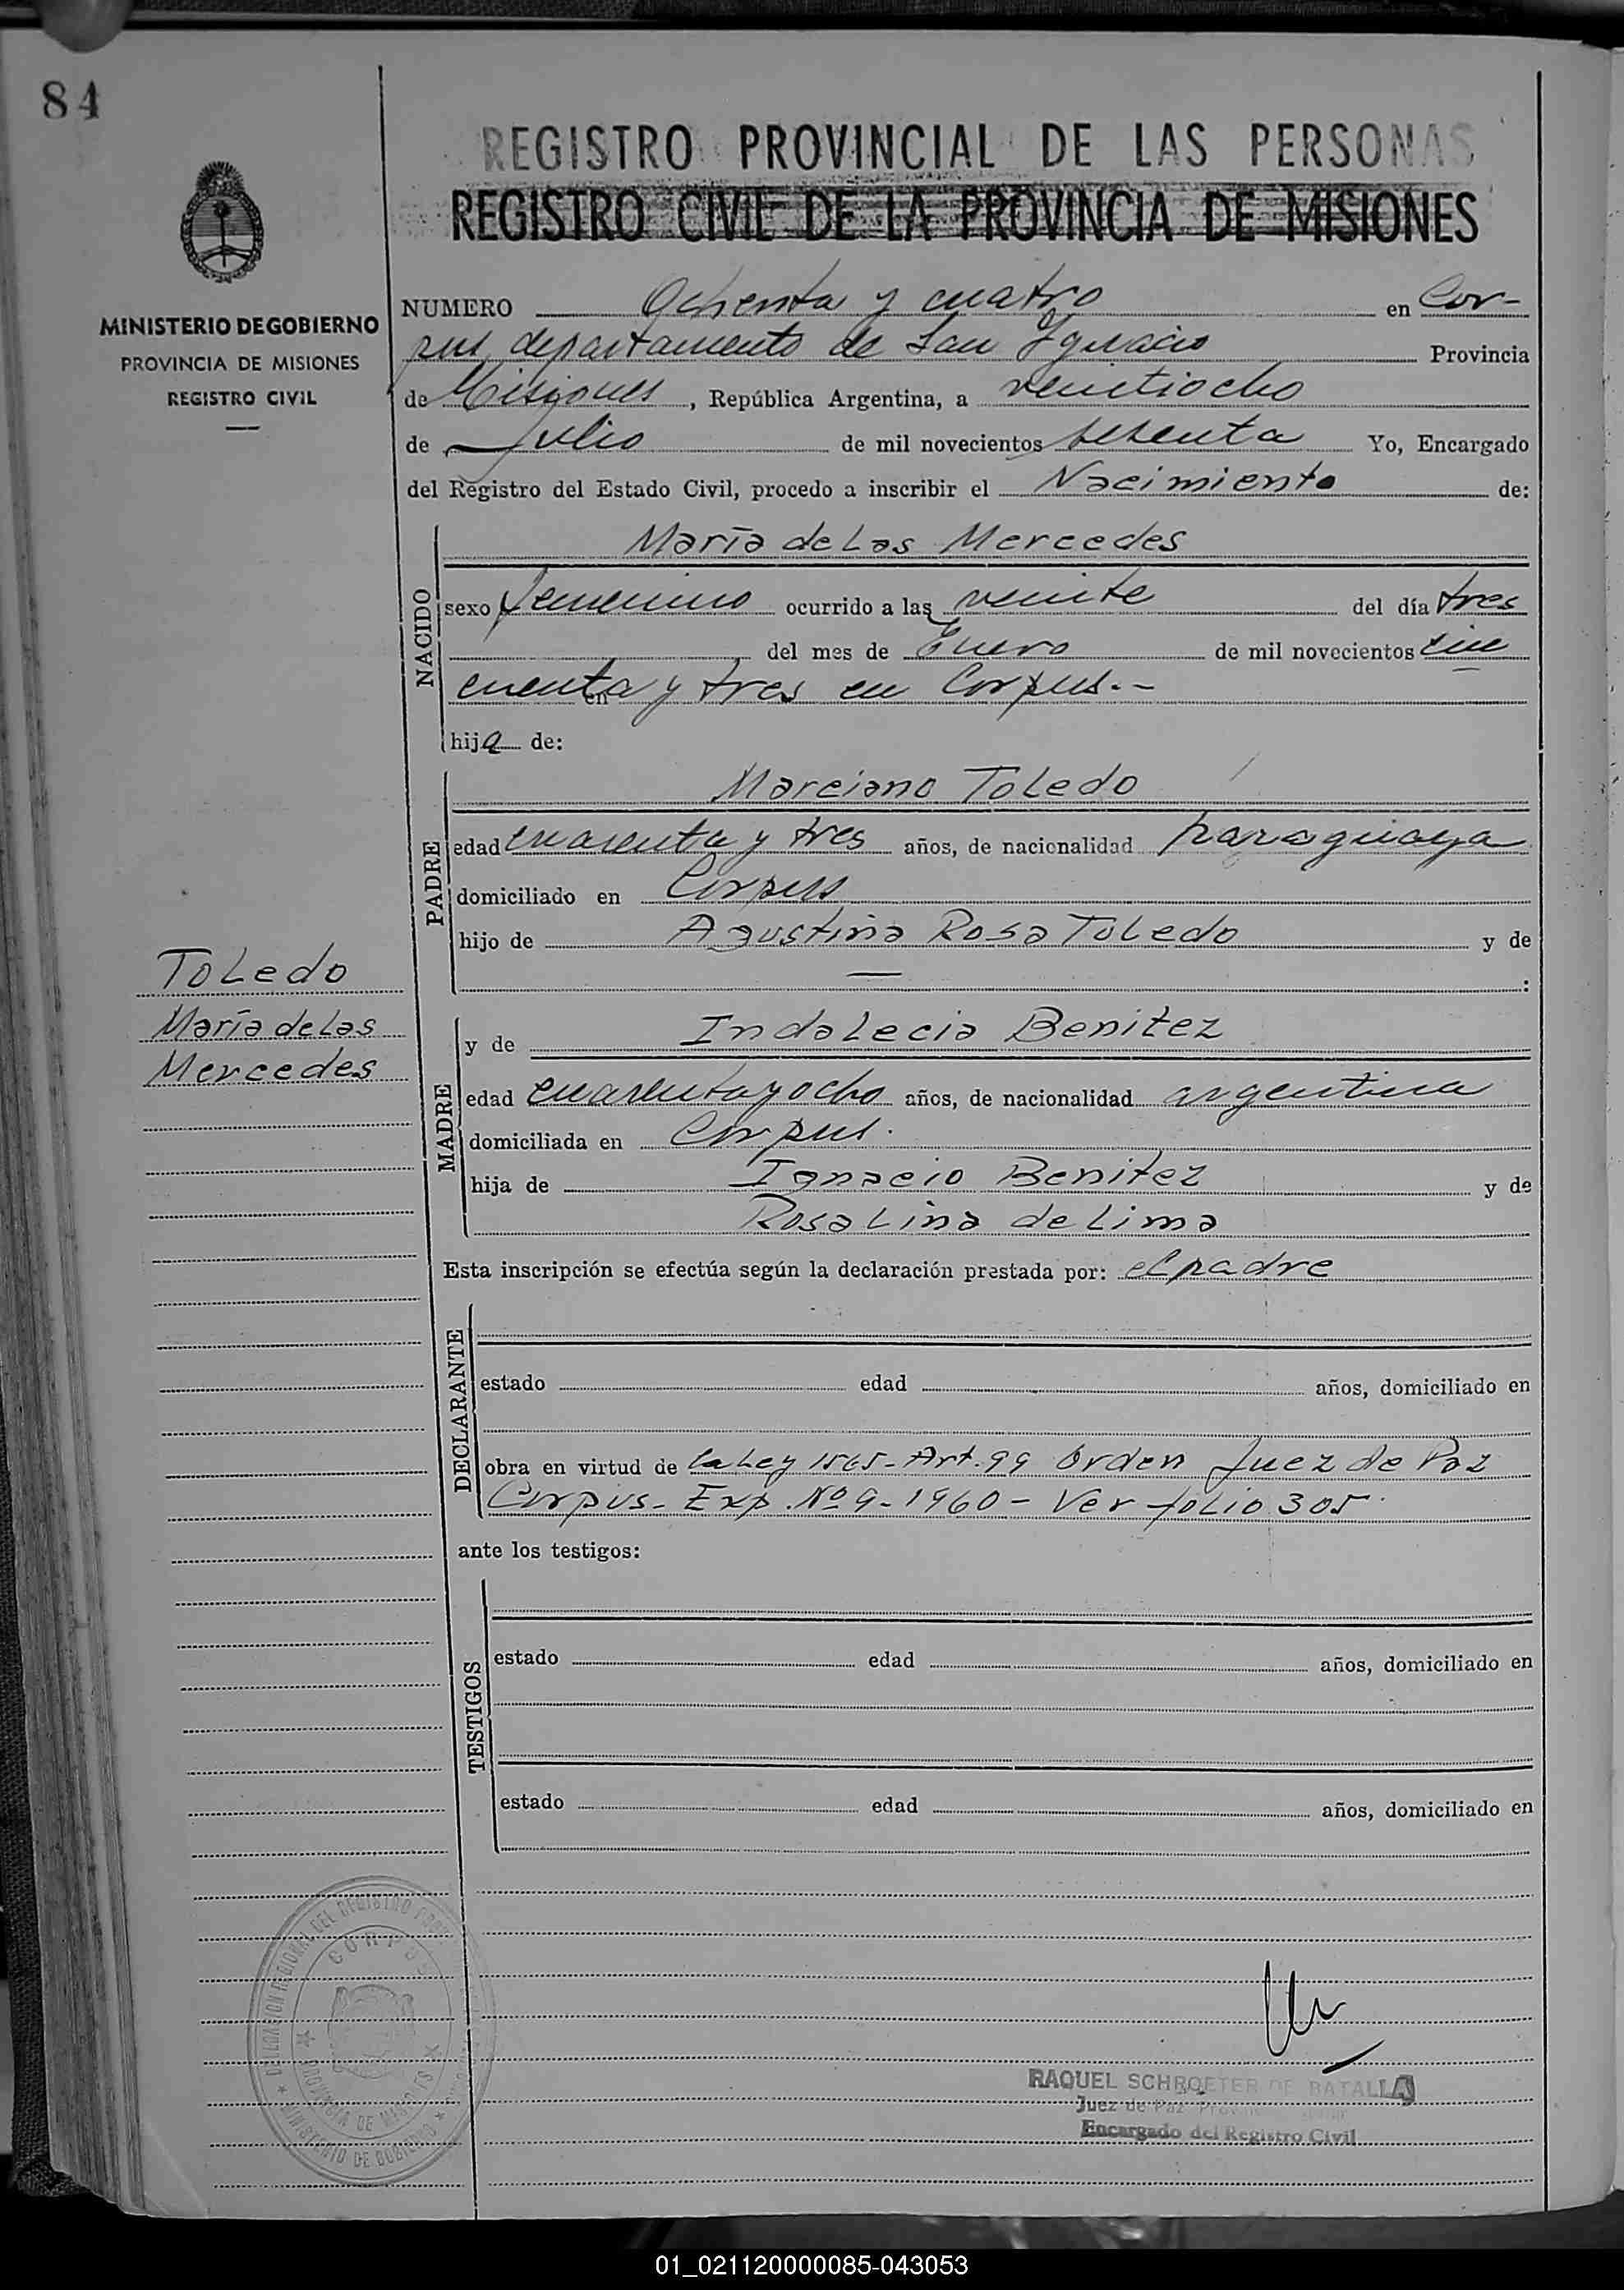 84
REGISTRO PROVINCIAL DE LAS PERSONAS
REGISTRO CIVIL DE LA PROVINCIA DE MISIONES
MINISTERIO DE GOBIERNO
PROVINCIA DE MISIONES
REGISTRO CIVIL
NUMERO Ochenta y cuatro en Cor-
pus, departamento de San Ygnacio Provincia
de Misiones, República Argentina, a veintiocho
de Julio de mil novecientos sesenta Yo, Encargado
del Registro del Estado Civil, procedo a inscribir el Nacimiento de:
NACIDO
María de Las Mercedes
sexo femenino ocurrido a las veinte del día tres
del mes de Enero de mil novecientos cin
cuenta y tres en Corpus.-
en
hija de:
PADRE
Marciano Toledo
edad cuarenta y tres años, de nacionalidad paraguaya
domiciliado en Corpus
hijo de Agustina Rosa Toledo y de
— :
Toledo
María de Las
Mercedes
MADRE
y de Indalecia Benitez
edad cuarenta y ocho años, de nacionalidad argentina
domiciliada en Corpus.
hija de Ignacio Benitez y de
Rosalina de Lima
Esta inscripción se efectúa según la declaración prestada por: el padre
DECLARANTE
estado edad años, domiciliado en
obra en virtud de la Ley 1565-Art. 99 Orden Juez de Paz
Corpus- Exp. Nº 9-1960- Ver folio 305
ante los testigos:
TESTIGOS
estado edad años, domiciliado en
estado edad años, domiciliado en
DELEGACION REGIONAL DEL REGISTRO
CORPUS
PROVINCIA DE MISIONES
MINISTERIO DE GOBIERNO
RAQUEL SCHROETER DE BATALLA
Juez de Paz
Encargado del Registro Civil
01_021120000085-043053